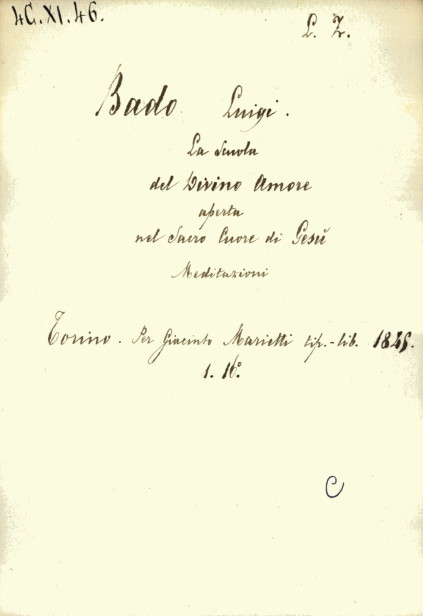 4G.XI.46.
L. Z.
Bado Luigi.
La Scuola
del Divino Amore
aperta
nel Sacro Cuore di Gesù
Meditazioni
Torino. Per Giacinto Marietti tip.-lib.
1.
C